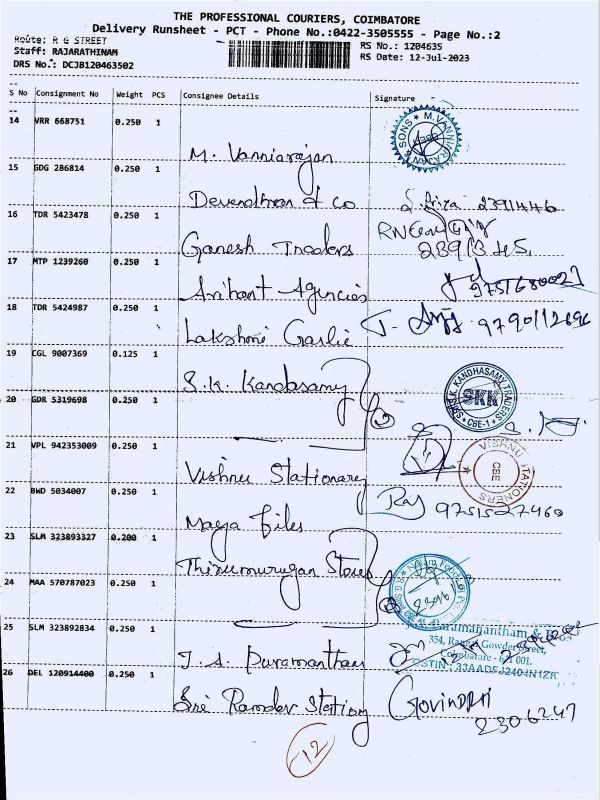 THE PROFESSIONAL COURIERS, COIMBATORE
Delivery Runsheet - PCT - Phone No.:0422-3505555 - Page No.:2
Route: R G STREET
RS No.: 1204635
Staff: RAJARATHINAM
RS Date: 12-Jul-2023
DRS No.: DCJB120463502
S No Consignment No Weight PCS Consignee Details Signature
14 VRR 668751 0.250 1
M. Vanniarajan
15 GDG 286814 0.250 1
Devendhran & co 2391446
16 TDR 5423478 0.250 1
Ganesh Traders 2391345
17 MTP 1239260 0.250 1
Arihant Agencies 9751680027
18 TDR 5424987 0.250 1
Lakshmi Garlic 9790112696
19 CGL 9007369 0.125 1
S.K. Kandasamy
S.K. KANDHASAMY TRADERS
SKK
CBE-1
20 GDR 5319698 0.250 1
21 VPL 942353009 0.250 1
Vishnu Stationary
VISHNU STATIONERS
CBE
22 BWD 5034007 0.250 1
Maya Files Raj 9751527460
23 SLM 323893327 0.200 1
Thirumurugan Stores
24 MAA 570787023 0.250 1
25 SLM 323892834 0.250 1
T. A. Paramanthan
Paramanantham &
354, Gowder Street,
Coimbatore - 641 001.
GSTIN : 33AADFJ2404N1ZK
26 DEL 120914400 0.250 1
Sri Ramdev Station Govindraj
2306247
12